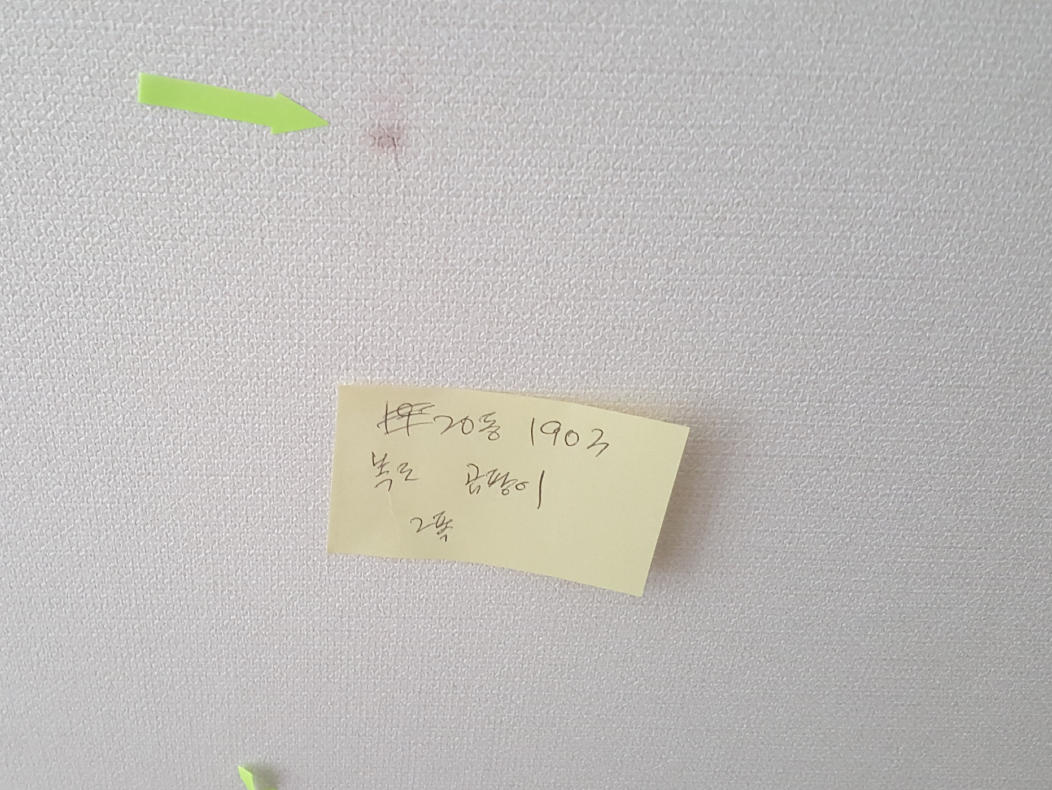 20동 1903
복도 곰팡이
2폭